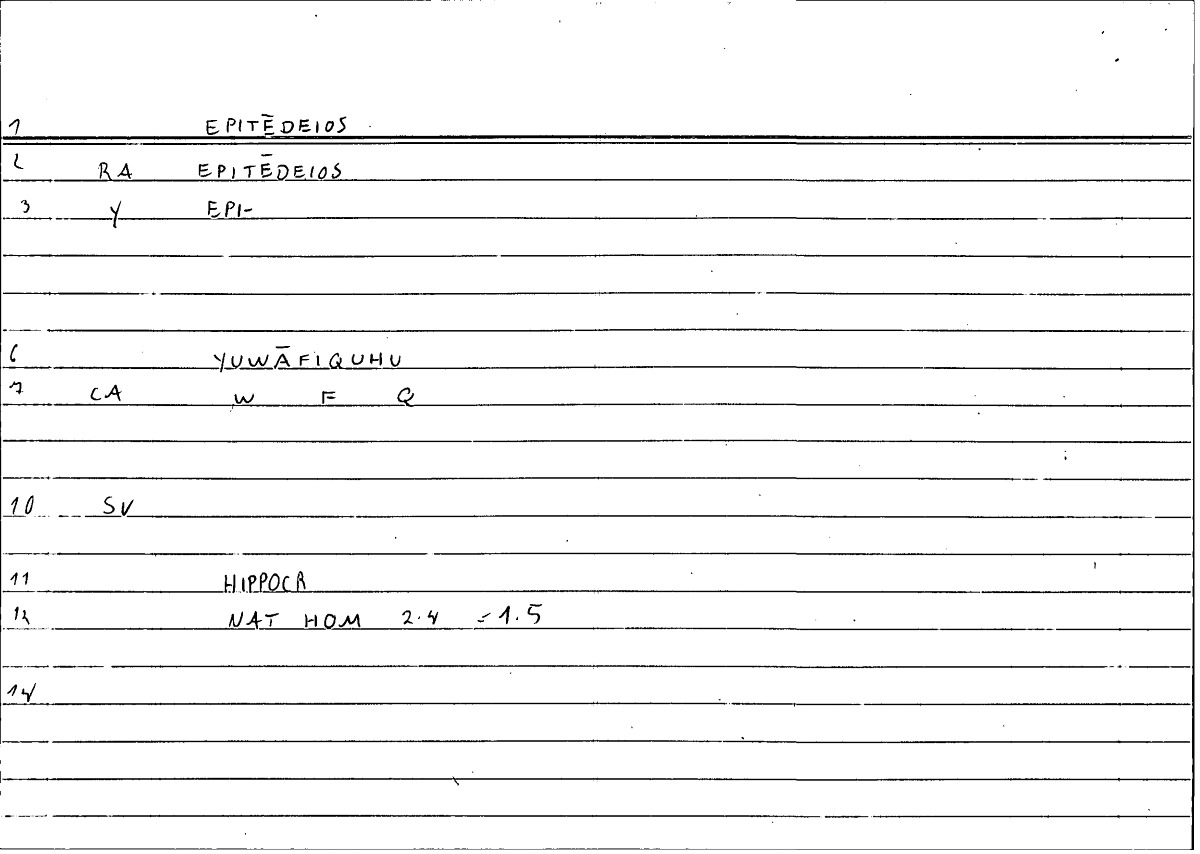 1 EPITĒDEIOS
2 RA EPITĒDEIOS
3 Y EPI-
6 YUWĀFIQUHU
7 CA W F Q
10 SV
11 HIPPOCR
12 NAT HOM 2.4 = 1.5
14